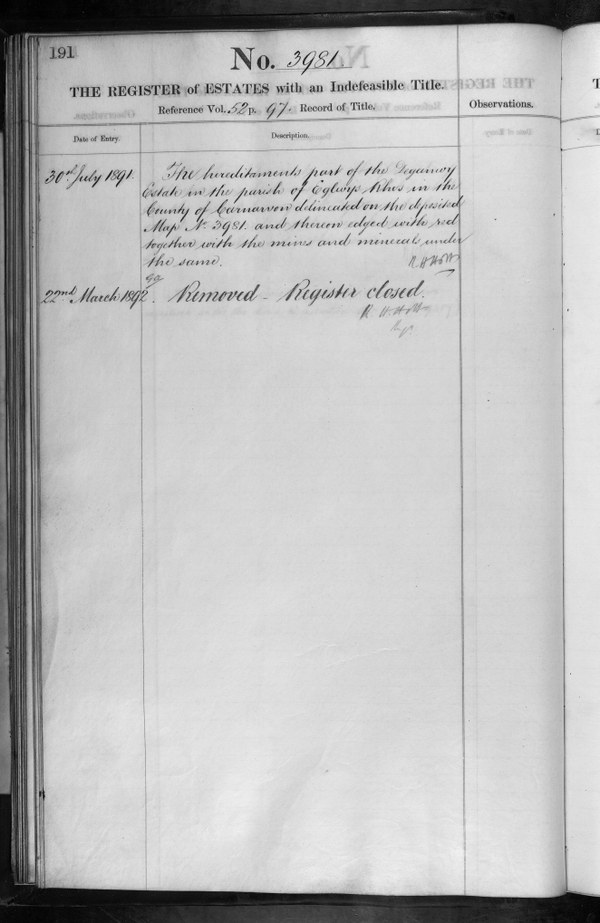 191
No. 3981
THE REGISTER of ESTATES with an Indefeasible Title.
Reference Vol. 52 p. 97. Record of Title.
Observations.
Date of Entry.
Description.
30th July 1891.
The hereditaments part of the Degannwy
Estate in the parish of Eglwys Rhos in the
County of Carnarvon delineated on the deposited
Map No. 3981. and thereon edged with red
together with the mines and minerals under
the same.
22nd March 1892. Removed - Register closed.